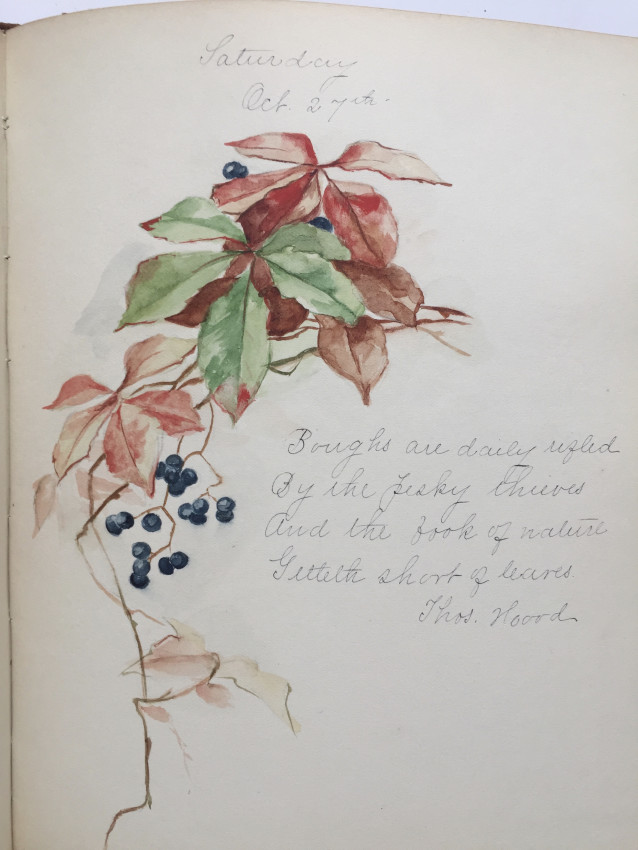 Saturday
Oct. 27th.
Boughs are daily rifled
By the pesky thieves
And the book of nature
Getteth short of leaves.
Thos. Hood